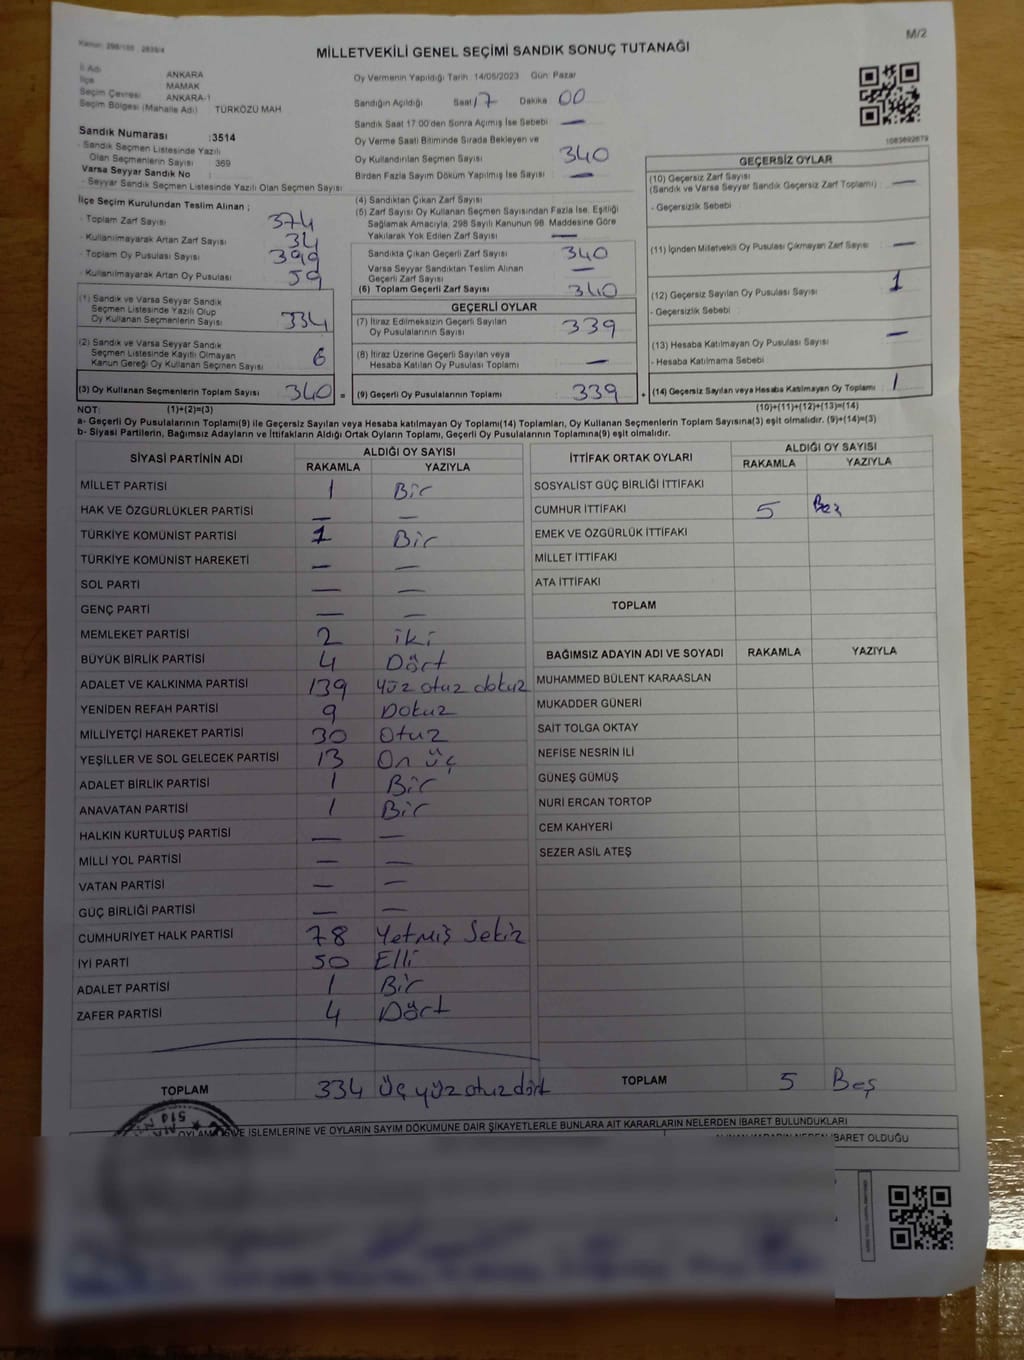 M/2
MİLLETVEKİLİ GENEL SEÇİMİ SANDIK SONUÇ TUTANAĞI
İl Adı ANKARA
İlçe MAMAK
Seçim Çevresi ANKARA-1
Seçim Bölgesi (Mahalle Adı) TÜRKÖZÜ MAH.
Sandık Numarası :3514
- Sandık Seçmen Listesinde Yazılı
Olan Seçmenlerin Sayısı : 369
Varsa Seyyar Sandık No :
- Seyyar Sandık Seçmen Listesinde Yazılı Olan Seçmen Sayısı:
Oy Vermenin Yapıldığı Tarih: 14/05/2023 Gün: Pazar
Sandığın Açıldığı Saat 17 Dakika 00
Sandık Saat 17:00'den Sonra Açımış İse Sebebi —
Oy Verme Saati Bitiminde Sırada Bekleyen ve
Oy Kullandırılan Seçmen Sayısı 340
Birden Fazla Sayım Döküm Yapılmış İse Sayısı —
İlçe Seçim Kurulundan Teslim Alınan ;
- Toplam Zarf Sayısı 374
- Kullanılmayarak Artan Zarf Sayısı 34
- Toplam Oy Pusulası Sayısı 399
- Kullanılmayarak Artan Oy Pusulası 59
(1) Sandık ve Varsa Seyyar Sandık
Seçmen Listesinde Yazılı Olup
Oy Kullanan Seçmenlerin Sayısı 334
(2) Sandık ve Varsa Seyyar Sandık
Seçmen Listesinde Kayıtlı Olmayan
Kanun Gereği Oy Kullanan Seçmen Sayısı 6
(3) Oy Kullanan Seçmenlerin Toplam Sayısı 340 =
(4) Sandıktan Çıkan Zarf Sayısı
(5) Zarf Sayısı Oy Kullanan Seçmen Sayısından Fazla İse, Eşitliği
Sağlamak Amacıyla, 298 Sayılı Kanunun 98. Maddesine Göre
Yakılarak Yok Edilen Zarf Sayısı —
Sandıkta Çıkan Geçerli Zarf Sayısı 340
Varsa Seyyar Sandıktan Teslim Alınan
Geçerli Zarf Sayısı —
(6) Toplam Geçerli Zarf Sayısı 340
GEÇERLİ OYLAR
(7) İtiraz Edilmeksizin Geçerli Sayılan
Oy Pusulalarının Sayısı 339
(8) İtiraz Üzerine Geçerli Sayılan veya
Hesaba Katılan Oy Pusulası Toplamı —
(9) Geçerli Oy Pusulalarının Toplamı 339 +
GEÇERSİZ OYLAR
(10) Geçersiz Zarf Sayısı
(Sandık ve Varsa Seyyar Sandık Geçersiz Zarf Toplamı) —
- Geçersizlik Sebebi :
(11) İçinden Milletvekili Oy Pusulası Çıkmayan Zarf Sayısı —
(12) Geçersiz Sayılan Oy Pusulası Sayısı 1
- Geçersizlik Sebebi :
(13) Hesaba Katılmayan Oy Pusulası Sayısı —
- Hesaba Katılmama Sebebi :
(14) Geçersiz Sayılan veya Hesaba Katılmayan Oy Toplamı 1
NOT: (1)+(2)=(3) (10)+(11)+(12)+(13)=(14)
a- Geçerli Oy Pusulalarının Toplamı(9) ile Geçersiz Sayılan veya Hesaba katılmayan Oy Toplamı(14) Toplamları, Oy Kullanan Seçmenlerin Toplam Sayısına(3) eşit olmalıdır. (9)+(14)=(3)
b- Siyasi Partilerin, Bağımsız Adayların ve İttifakların Aldığı Ortak Oyların Toplamı, Geçerli Oy Pusulalarının Toplamına(9) eşit olmalıdır.
SİYASİ PARTİNİN ADI ALDIĞI OY SAYISI
RAKAMLA YAZIYLA
MİLLET PARTİSİ 1 Bir
HAK VE ÖZGÜRLÜKLER PARTİSİ — —
TÜRKİYE KOMÜNİST PARTİSİ 1 Bir
TÜRKİYE KOMÜNİST HAREKETİ — —
SOL PARTİ — —
GENÇ PARTİ — —
MEMLEKET PARTİSİ 2 iki
BÜYÜK BİRLİK PARTİSİ 4 Dört
ADALET VE KALKINMA PARTİSİ 139 Yüz otuz dokuz
YENİDEN REFAH PARTİSİ 9 Dokuz
MİLLİYETÇİ HAREKET PARTİSİ 30 Otuz
YEŞİLLER VE SOL GELECEK PARTİSİ 13 On üç
ADALET BİRLİK PARTİSİ 1 Bir
ANAVATAN PARTİSİ 1 Bir
HALKIN KURTULUŞ PARTİSİ — —
MİLLİ YOL PARTİSİ — —
VATAN PARTİSİ — —
GÜÇ BİRLİĞİ PARTİSİ — —
CUMHURİYET HALK PARTİSİ 78 Yetmiş Sekiz
İYİ PARTİ 50 Elli
ADALET PARTİSİ 1 Bir
ZAFER PARTİSİ 4 Dört
TOPLAM 334 üç yüz otuz dört
İTTİFAK ORTAK OYLARI ALDIĞI OY SAYISI
RAKAMLA YAZIYLA
SOSYALİST GÜÇ BİRLİĞİ İTTİFAKI
CUMHUR İTTİFAKI 5 Beş
EMEK VE ÖZGÜRLÜK İTTİFAKI
MİLLET İTTİFAKI
ATA İTTİFAKI
TOPLAM
BAĞIMSIZ ADAYIN ADI VE SOYADI RAKAMLA YAZIYLA
MUHAMMED BÜLENT KARAASLAN
MUKADDER GÜNERİ
SAİT TOLGA OKTAY
NEFİSE NESRİN İLİ
GÜNEŞ GÜMÜŞ
NURİ ERCAN TORTOP
CEM KAHYERİ
SEZER ASİL ATEŞ
TOPLAM 5 Beş
İŞLEMLERİNE VE OYLARIN SAYIM DÖKÜMÜNE DAİR ŞİKAYETLERLE BUNLARA AİT KARARLARIN NELERDEN İBARET BULUNDUKLARI
İBARET OLDUĞU